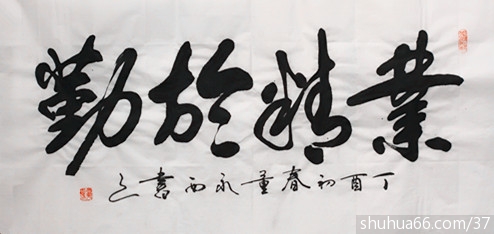 業精於勤
丁酉初春董永西書
shuhua66.com/37